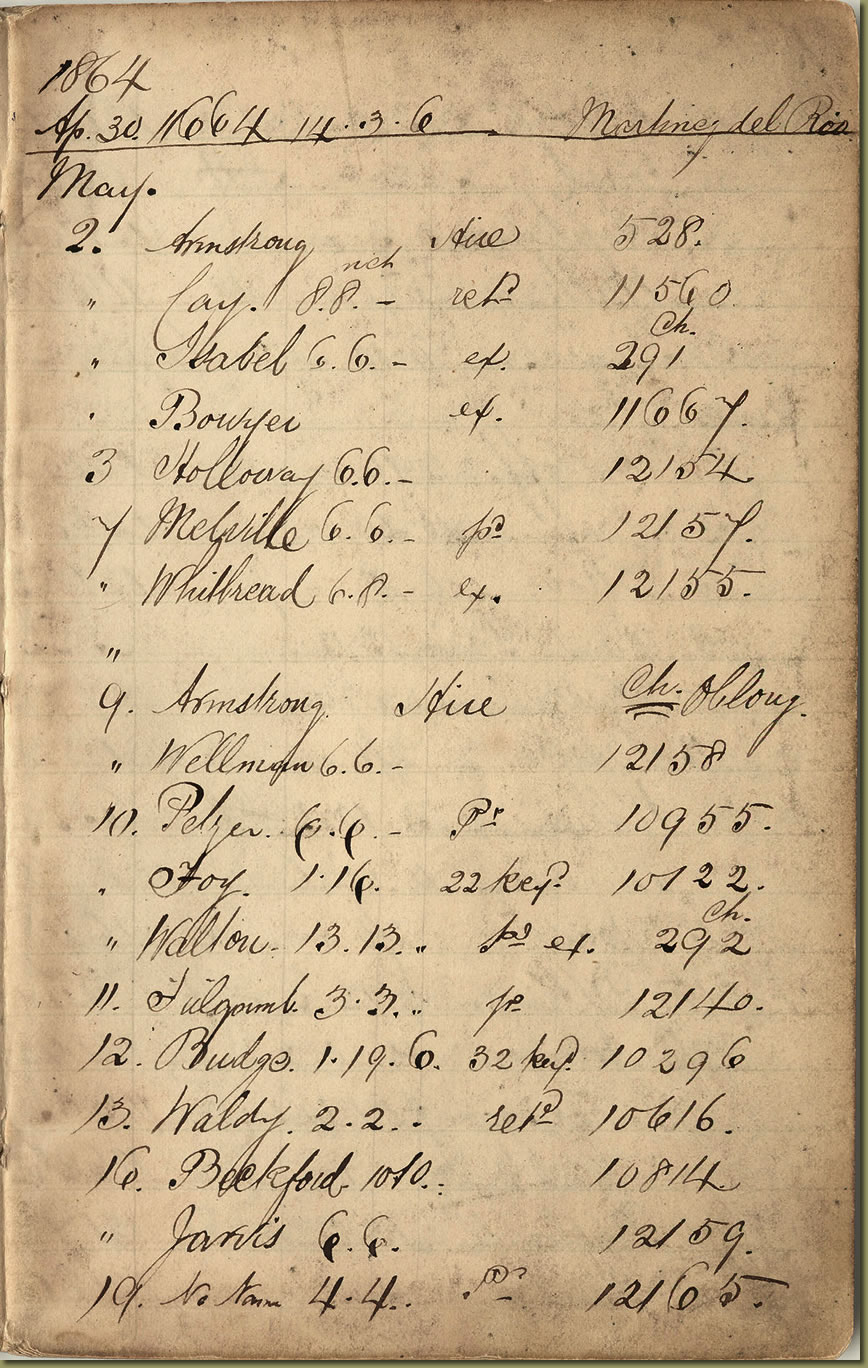 1864
Ap. 30. 11664 14.3.6 Martinez del Rio
May.
2. Armstrong Hire 528.
nch
" Cay. 8.8. - retd 11560.
Ch.
" Isabel 6.6. - ex. 291
. Bowyer ex. 11667.
3 Holloway 6.6. - 12154.
7 Melville 6.6. - pd 12157.
" Whitbread 6.8. - ex. 12155.
"
9. Armstrong. Hire Ch. Oblong.
" Wellman 6.6. - 12158
10. Pelzer. 6.6. - Pr 10955.
" Foy. 1.16. 22 keyd 10122.
Ch.
" Walton. 13.13. " pd ex. 292
11. 3.3. " pd 12140.
12. Budge. 1.19.6. 32 keyd 10296
13. Waldy. 2.2. . retd 10616.
16. Beckford. 10.10. 10814.
" Jarvis 6.6. 12159.
19. No Name 4.4.. Pr 12165.